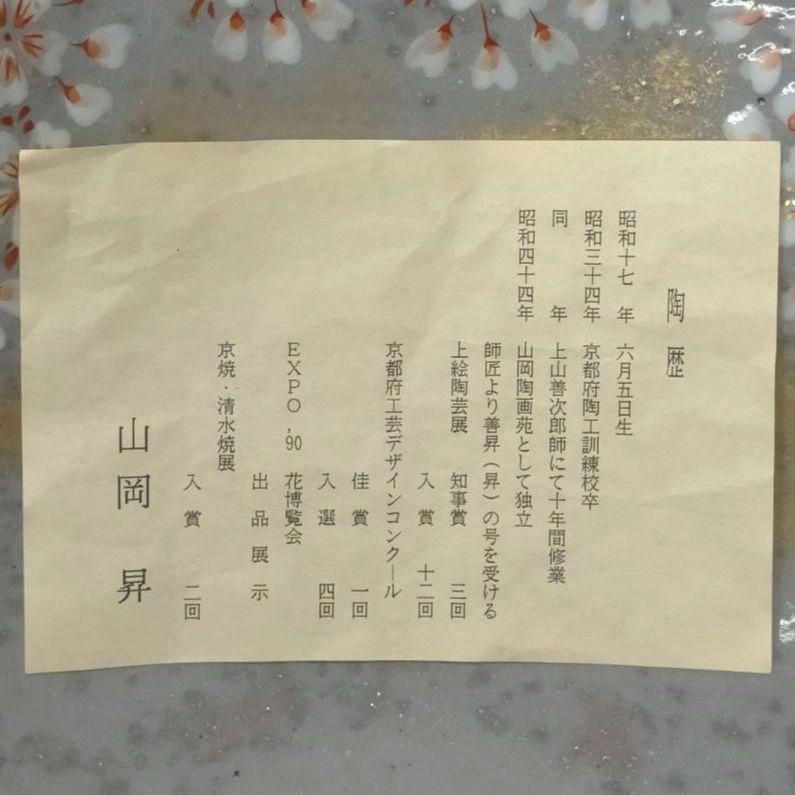 陶歴
昭和十七 年 六月五日生
昭和三十四年 京都府陶工訓練校卒
同 年 上山善次郎師にて十年間修業
昭和四十四年 山岡陶画苑として独立
師匠より善昇(昇)の号を受ける
上絵陶芸展 知事賞 三回
入賞 十二回
京都府工芸デザインコンクール
佳賞 一回
入選 四回
EXPO,90 花博覧会
出品展示
京焼・清水焼展
入賞 二回
山岡 昇